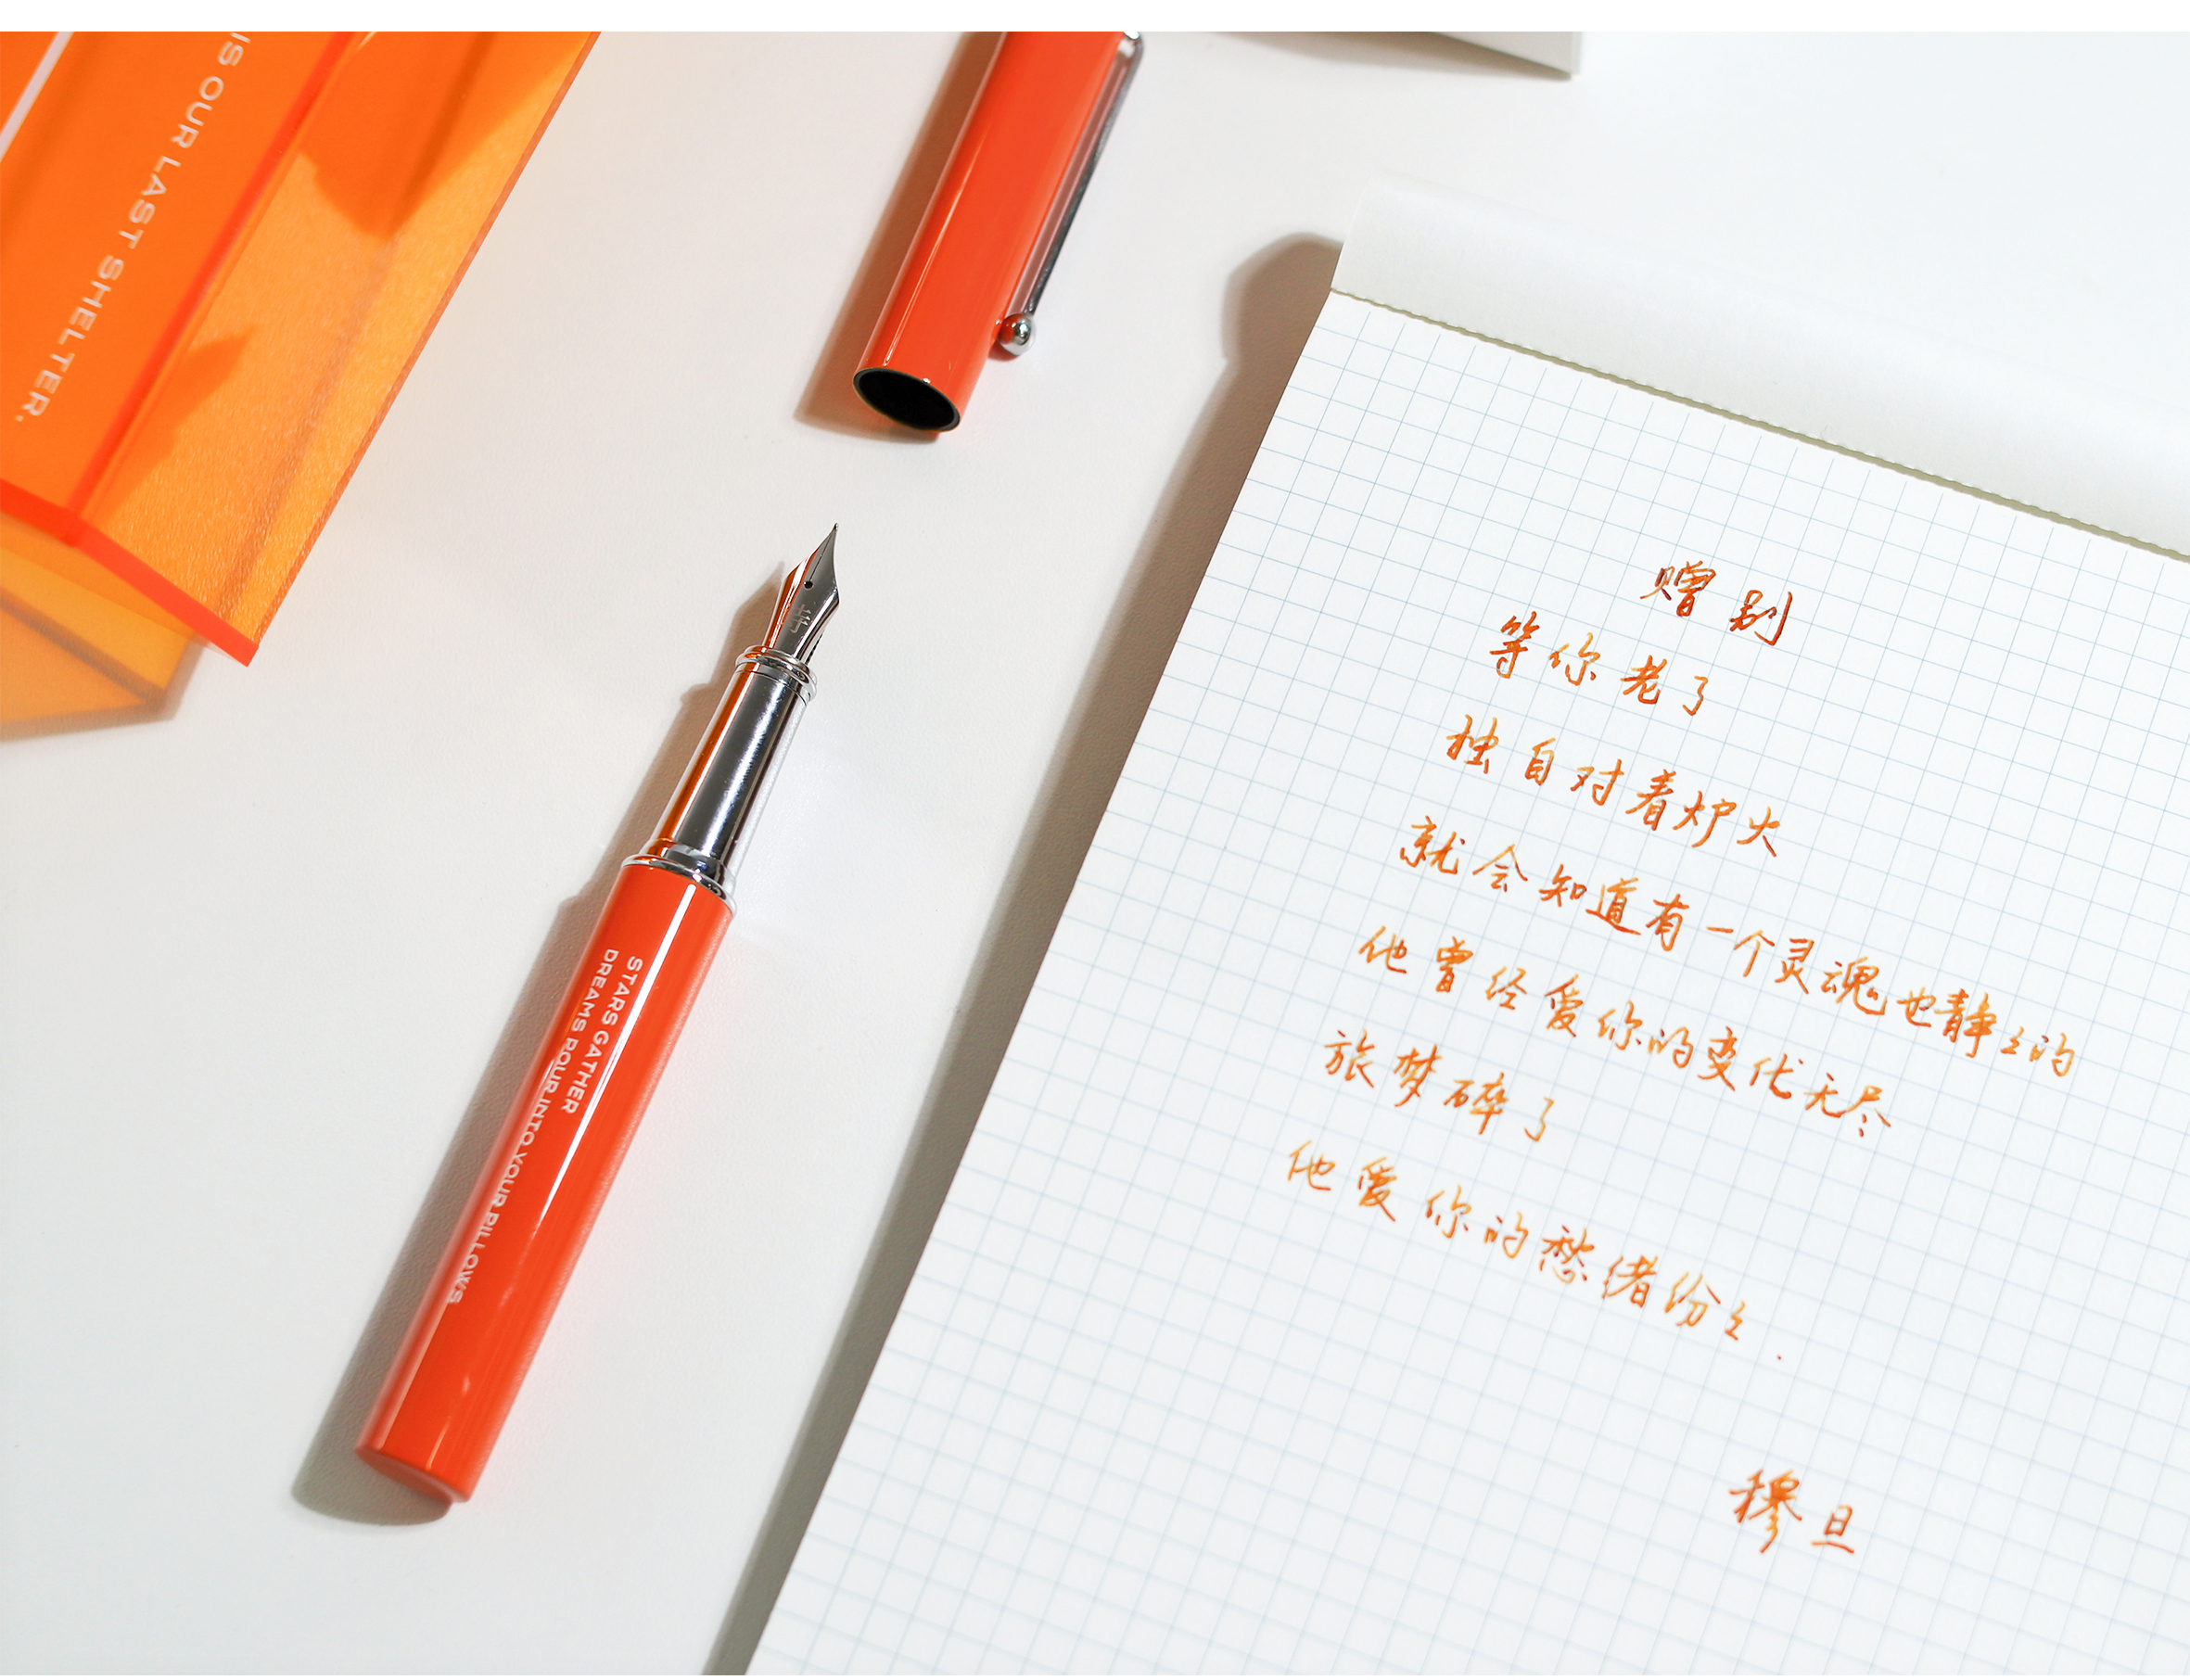 IS OUR LAST SHELTER.
STARS GATHER
DREAMS POUR INTO YOUR PILLOWS
赠别
等你老了
独自对着炉火
就会知道有一个灵魂也静々的
他曾经爱你的变化无尽
旅梦碎了
他爱你的愁绪纷々.
穆旦